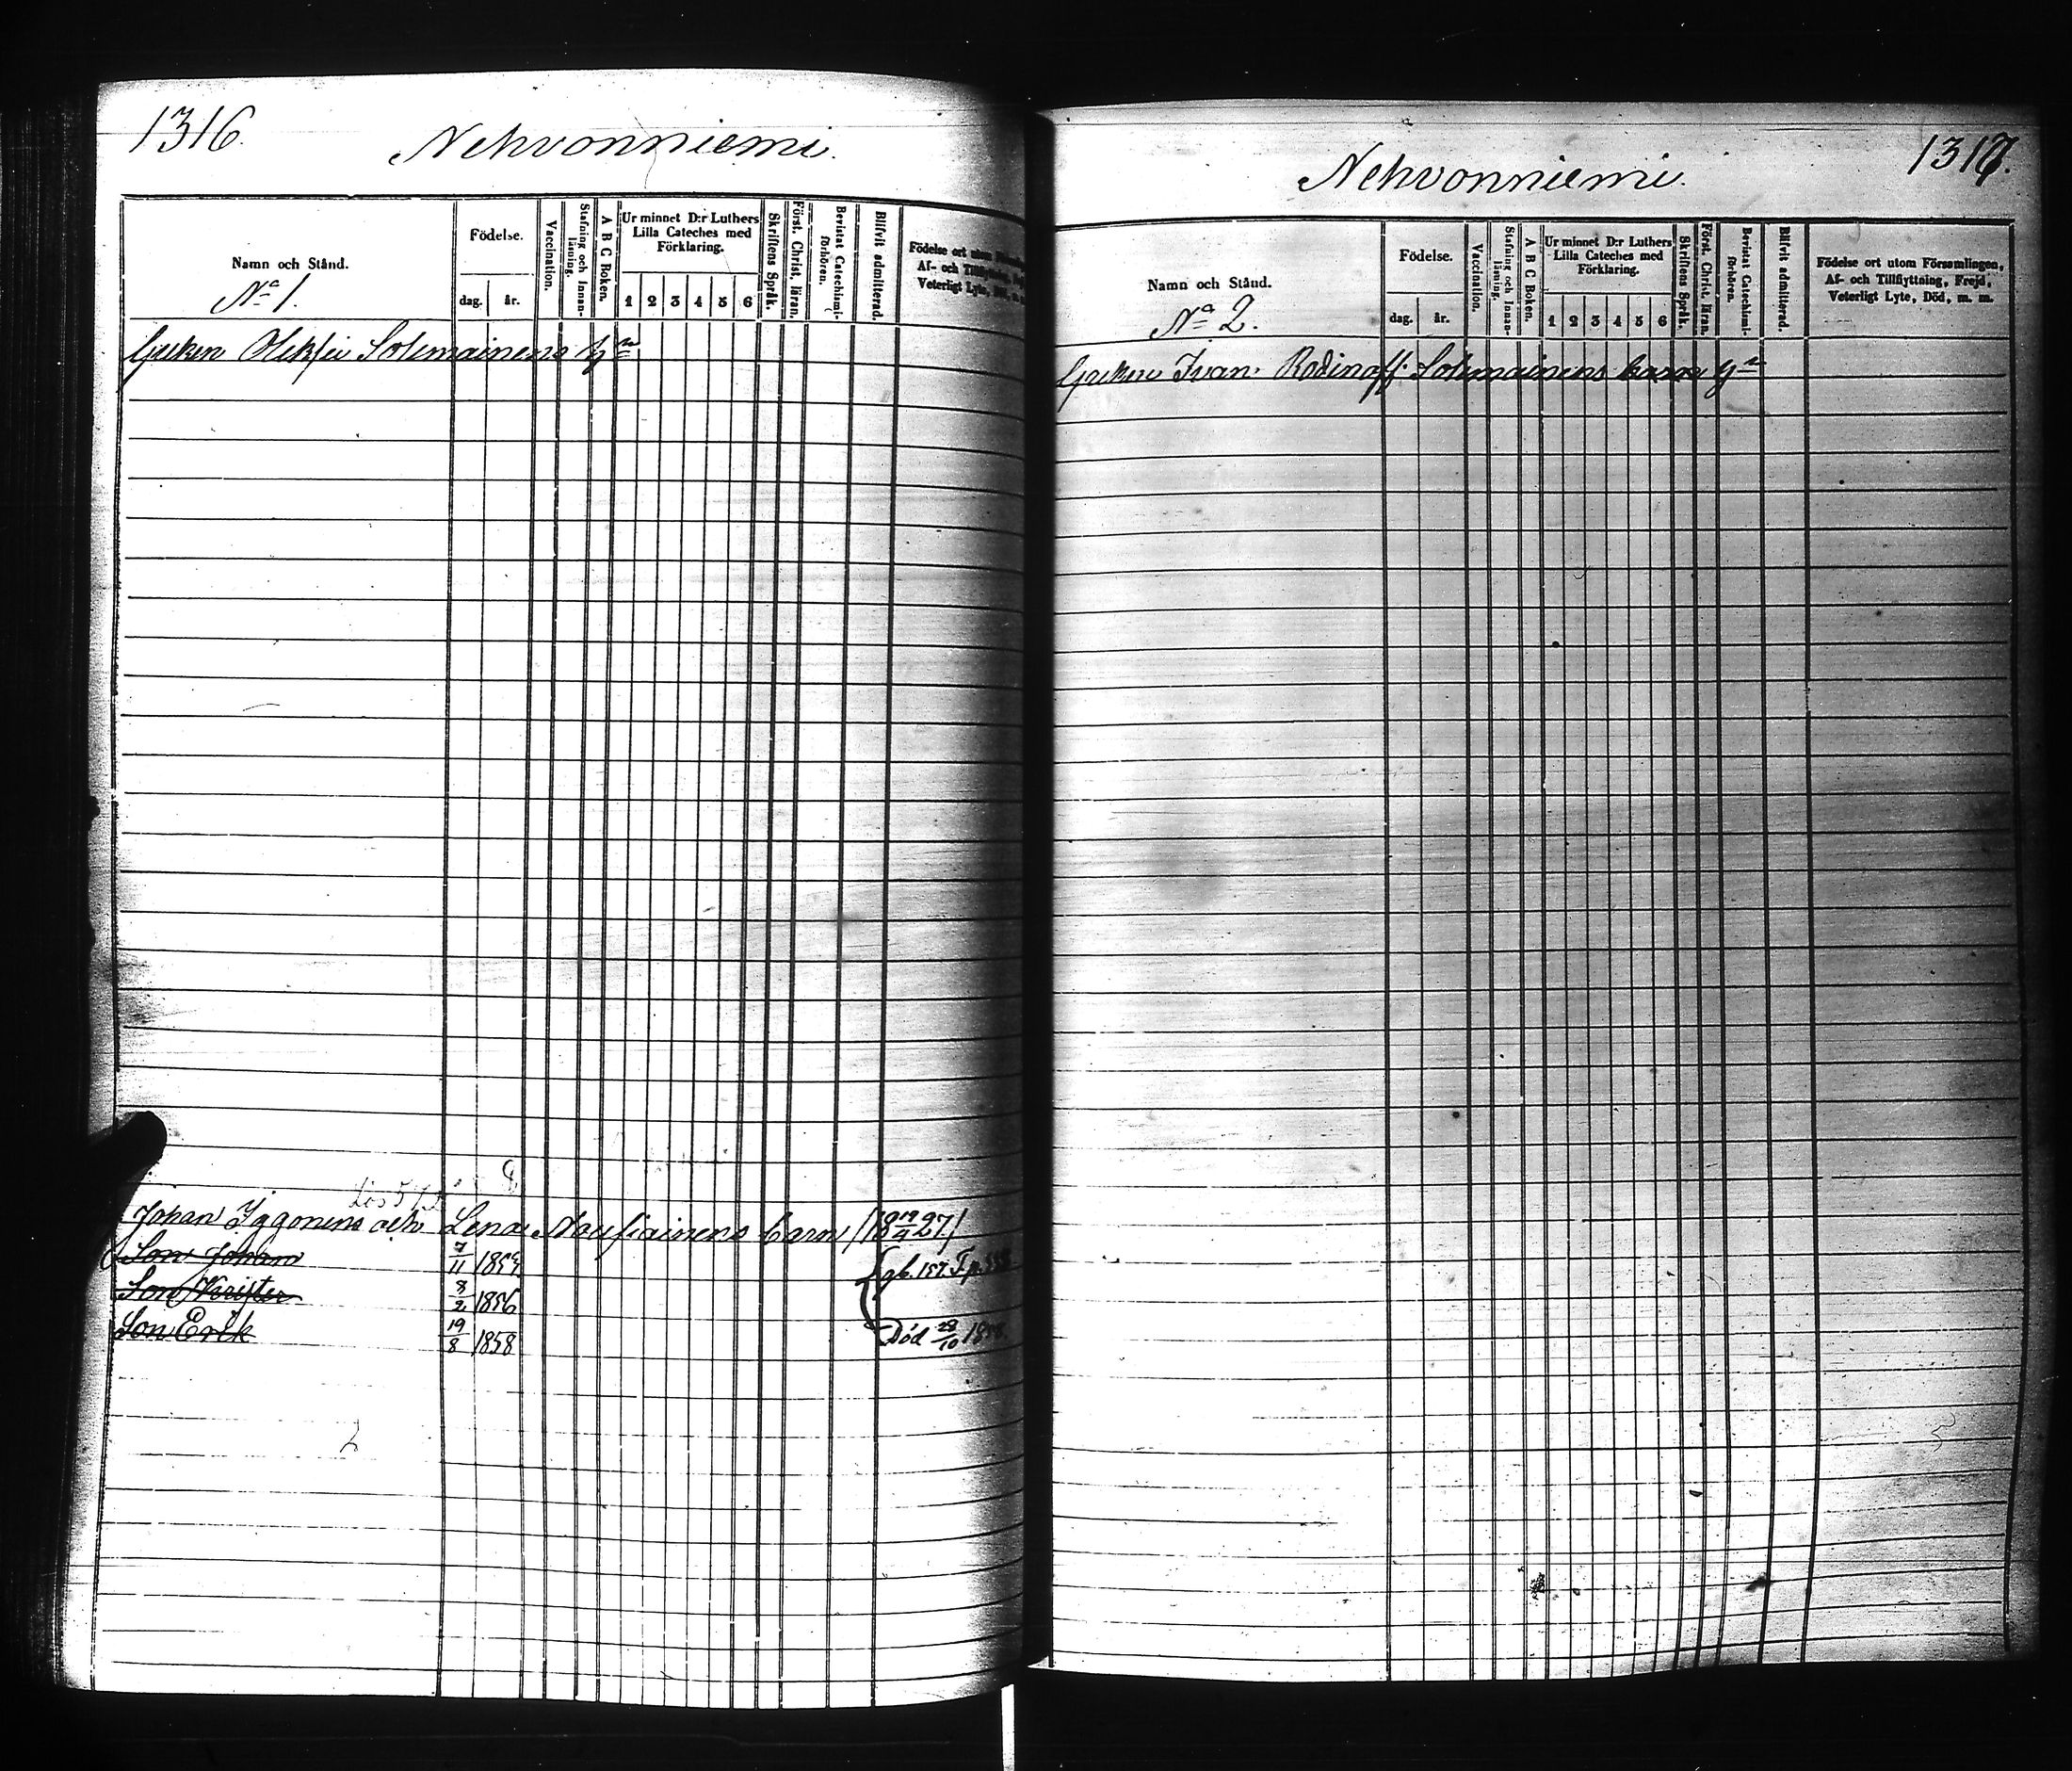 1316.
Nehvonniemi.
Namn och Stånd.
No 1.
Födelse.
dag. år.
Vaccination.
Stafning och Innanläsning.
A B C Boken.
Ur minnet D:r Luthers Lilla Cateches med Förklaring.
1 2 3 4 5 6
Skriftens Språk.
Först. Christ. läran.
Bevistat Catechismiförhören.
Blifvit admitterad.
Födelse ort utom
Af- och Tillflyttning,
Veterligt Lyte,
Greken Oleksei Solemainens
Johan Iggonens och Lena Nousiainens barn (18 19/4 27)
Son Johan 7/11 1854
Son Krister 8/2 1856
Son Erik 19/8 1858 Död 28/10 1858.
1317.
Nehvonniemi.
Namn och Stånd.
No 2.
Födelse.
dag. år.
Vaccination.
Stafning och Innanläsning.
A B C Boken.
Ur minnet D:r Luthers Lilla Cateches med Förklaring.
1 2 3 4 5 6
Skriftens Språk.
Först. Christ. läran.
Bevistat Catechismiförhören.
Blifvit admitterad.
Födelse ort utom Församlingen,
Af- och Tillflyttning, Frejd,
Veterligt Lyte, Död, m. m.
Greken Ivan Rodinoff Solemainens barn